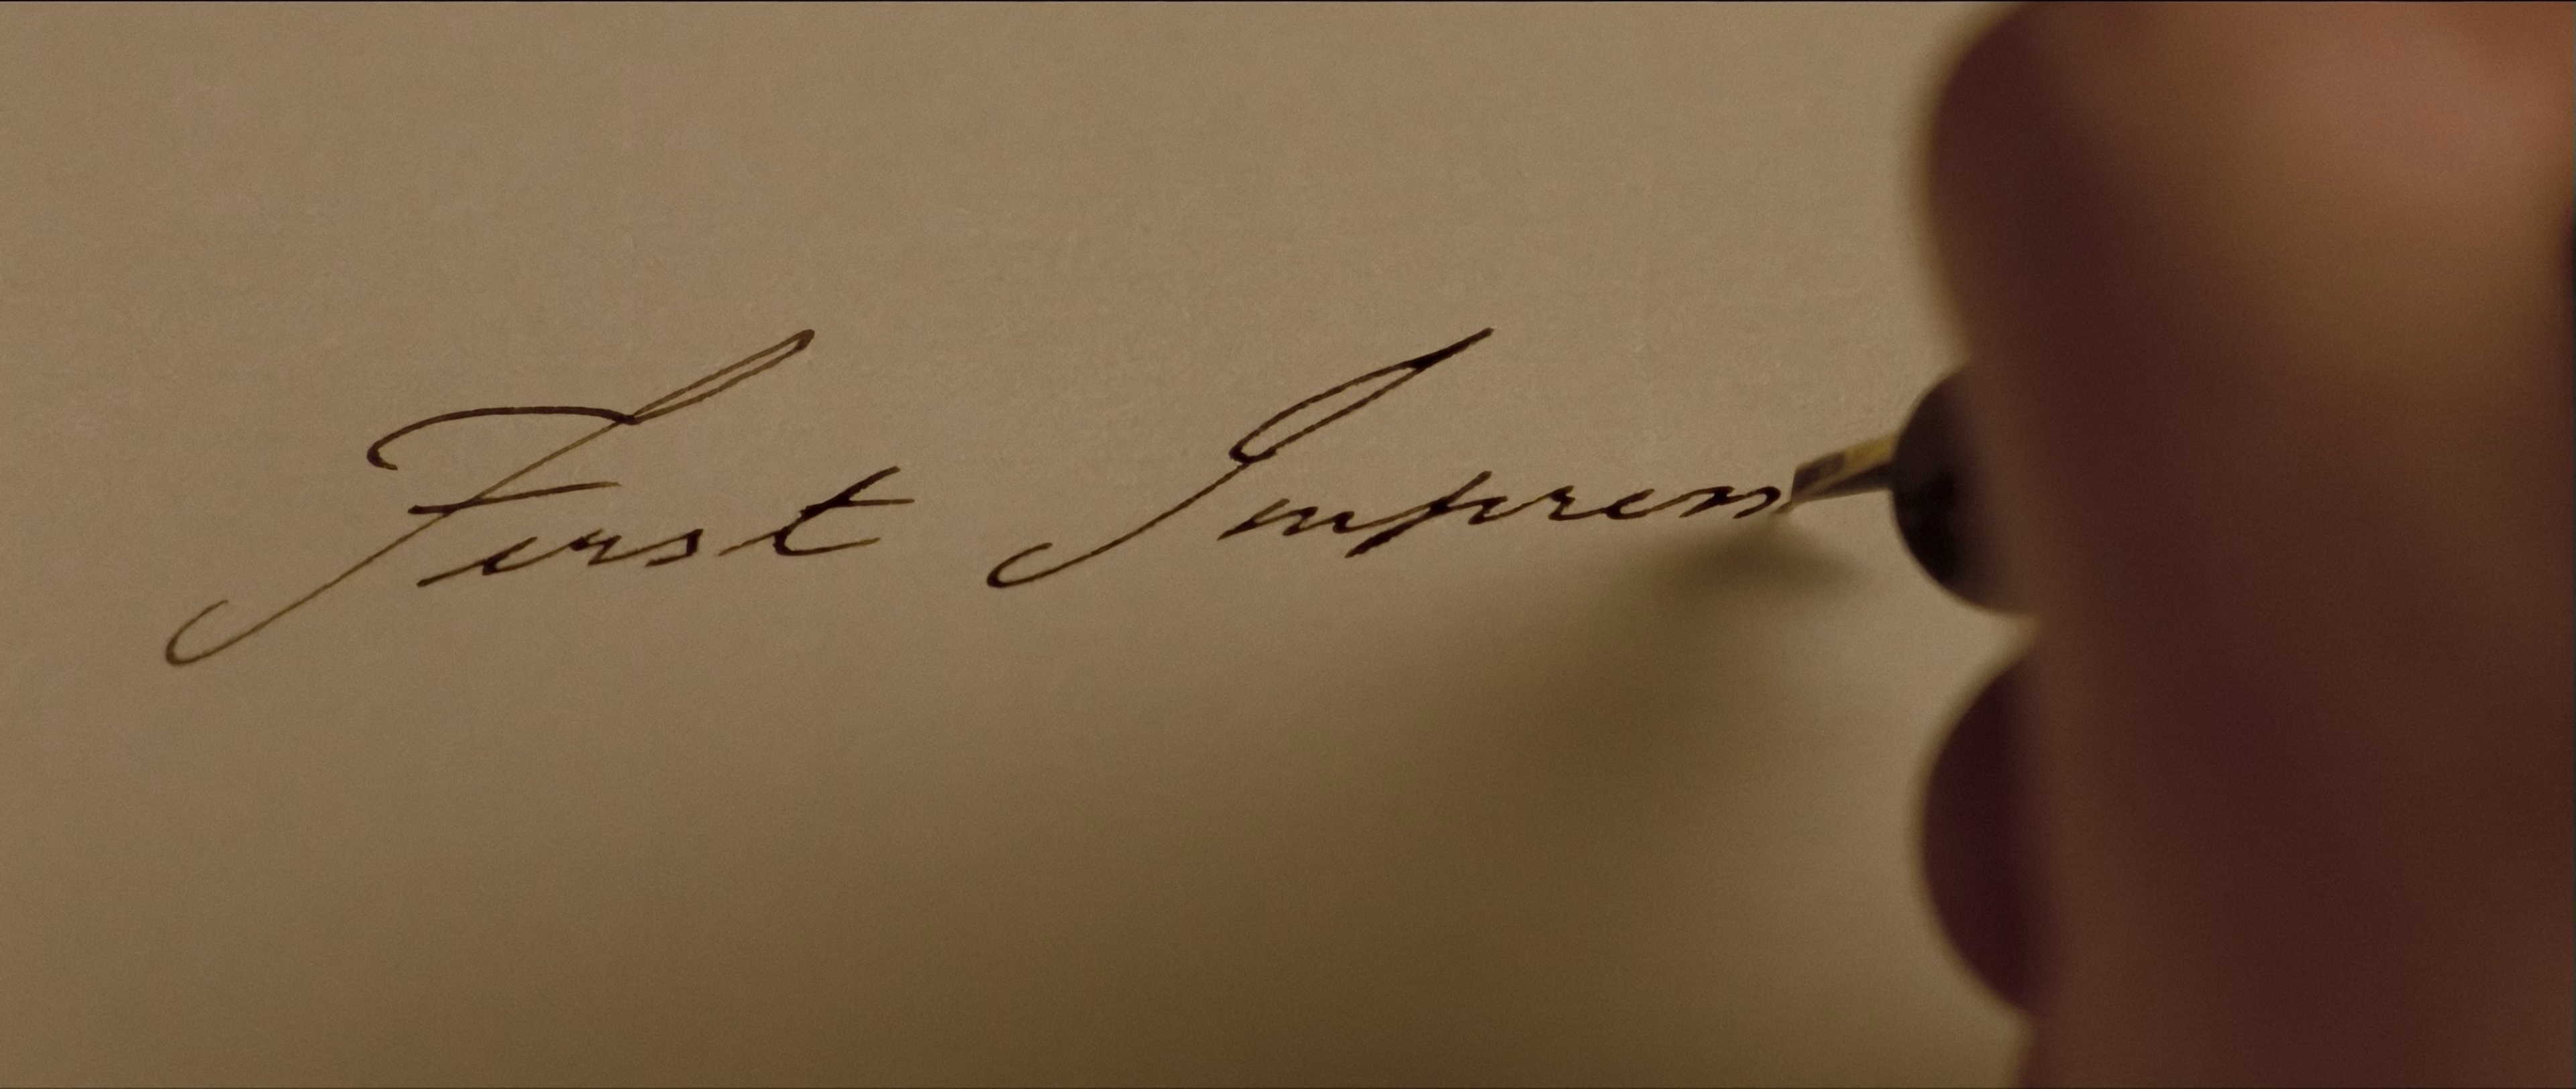 First Impress